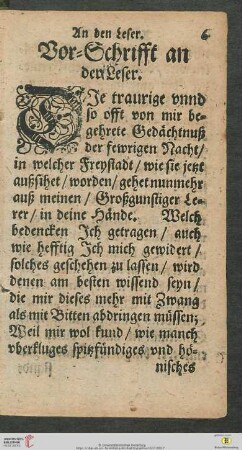 An den Leser.
6
Vor-Schrifft an
den Leser.
DIe traurige vnnd
so offt von mir be-
gehrete Gedächtnuß
der fewrigen Nacht/
in welcher Freystadt/ wie sie jetzt
außsihet/ worden/ gehet nunmehr
auß meinen/ Großgunstiger Le-
rer/ in deine Hände. Welch
bedencken Ich getragen/ auch
wie hefftig Ich mich gewidert/
solches geschehen zu lassen/ wird
denen am besten wissend seyn/
die mir dieses mehr mit Zwang
als mit Bitten abdringen müssen;
Weil mir wol kund/ wie manch
vberkluges spitzfündiges vnd hö-
nisches